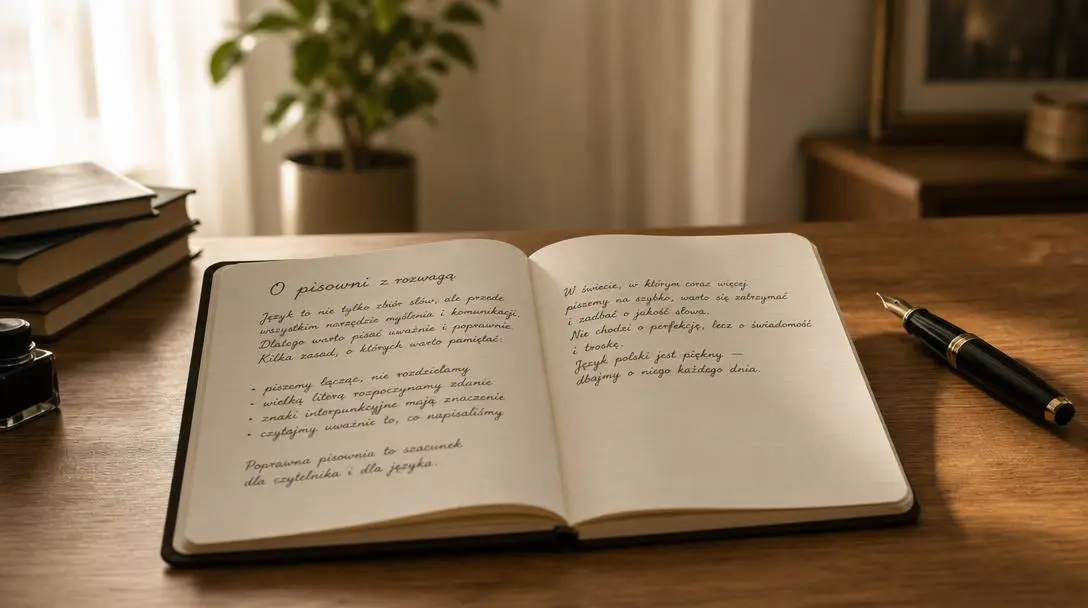 O pisowni z rozwagą
Język to nie tylko zbiór słów, ale przede
wszystkim narzędzie myślenia i komunikacji.
Dlatego warto pisać uważnie i poprawnie.
Kilka zasad, o których warto pamiętać:
• piszemy łącząc, nie rozdzielamy
• wielką literą rozpoczynamy zdanie
• znaki interpunkcyjne mają znaczenie
• czytajmy uważnie to, co napisaliśmy
Poprawna pisownia to szacunek
dla czytelnika i dla języka.
W świecie, w którym coraz więcej
piszemy na szybko, warto się zatrzymać
i zadbać o jakość słowa.
Nie chodzi o perfekcję, lecz o świadomość
i troskę.
Język polski jest piękny —
dbajmy o niego każdego dnia.